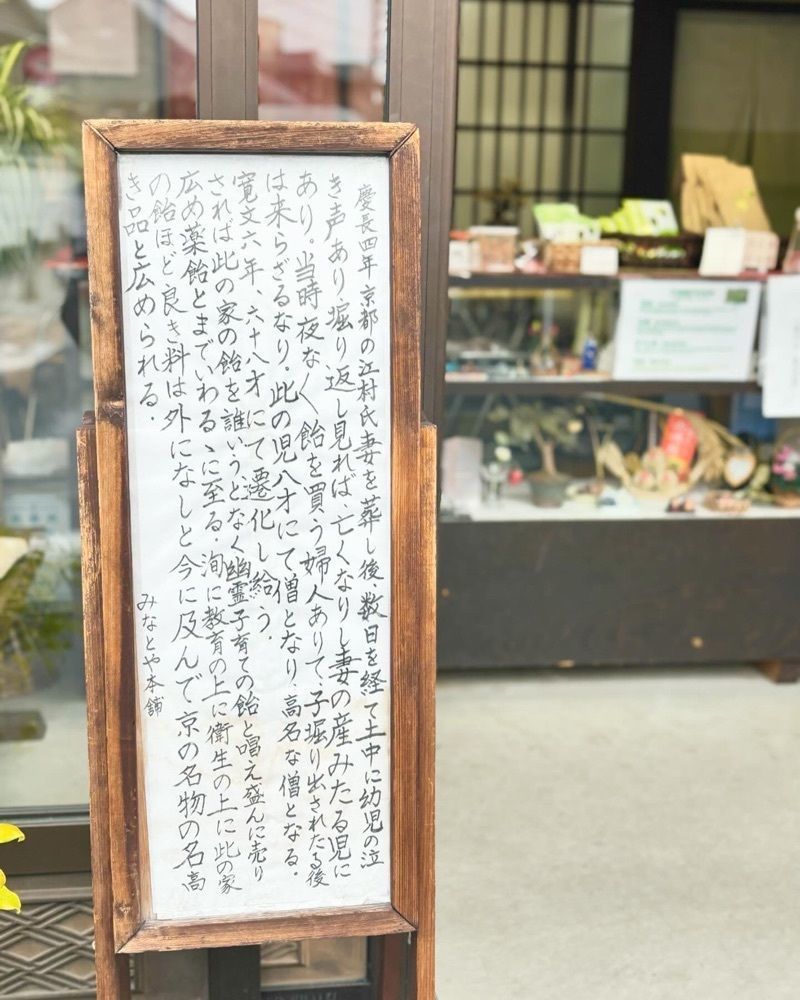 慶長四年京都の江村氏妻を葬し後、数日を経て土中に幼児の泣
き声あり堀り返し見れば、亡くなりし妻の産みたる児に
あり。当時夜なく飴を買う婦人ありて、子堀り出されたる後
は来らざるなり。此の児八才にて僧となり、高名な僧となる。
寛文六年、六十八才にて遷化し給う。
されば此の家の飴を誰いうとなく幽霊子育ての飴と唱え盛んに売り
広め薬飴とまでいわるゝに至る。洵に教育の上に衛生の上に此の家
の飴ほど良き料は外になしと今に及んで京の名物の名高
き品と広められる。
みなとや本舗